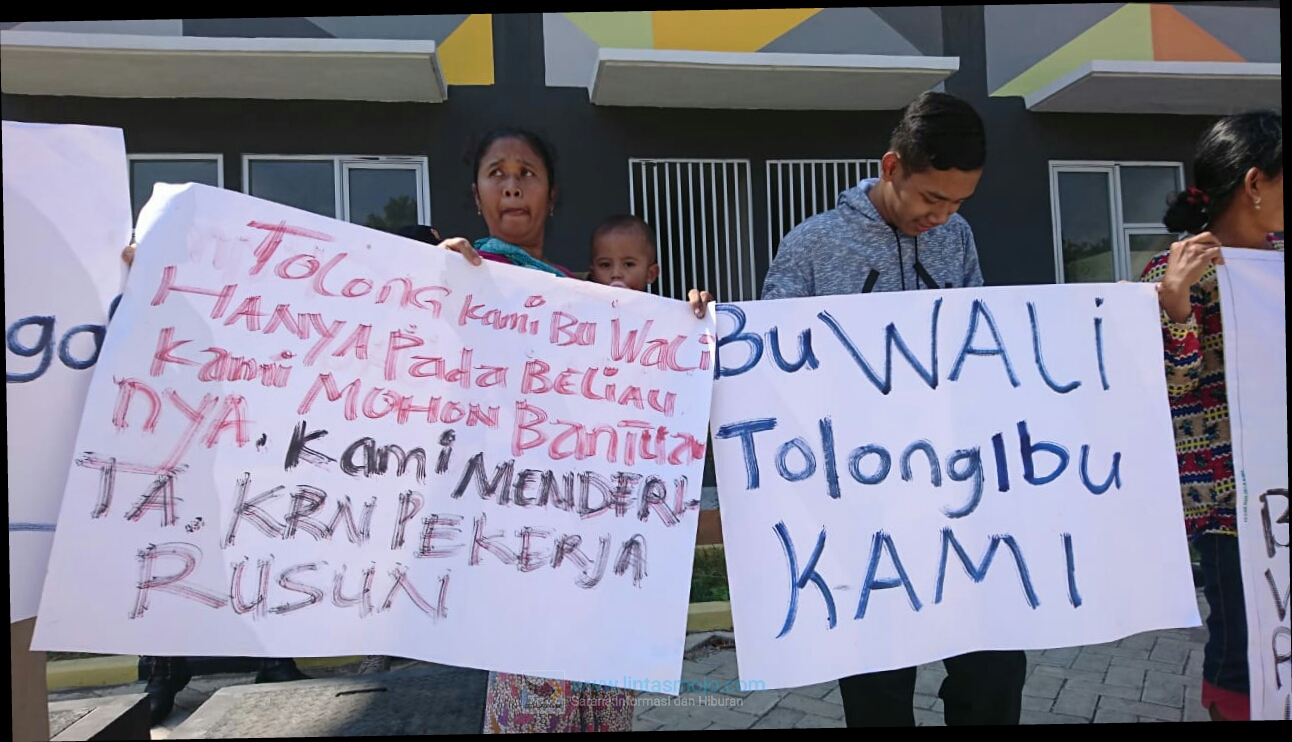 go
Tolong kami Bu Wali
HANYA Pada BELIAU
kami MOHON Bantua
NYA. Kami MENDERI-
TA. KRN PEKERJA
RUSUN
Bu WALi
Tolong Ibu
KAMI
www.lintasmojo.com
Sarana Informasi dan Hiburan